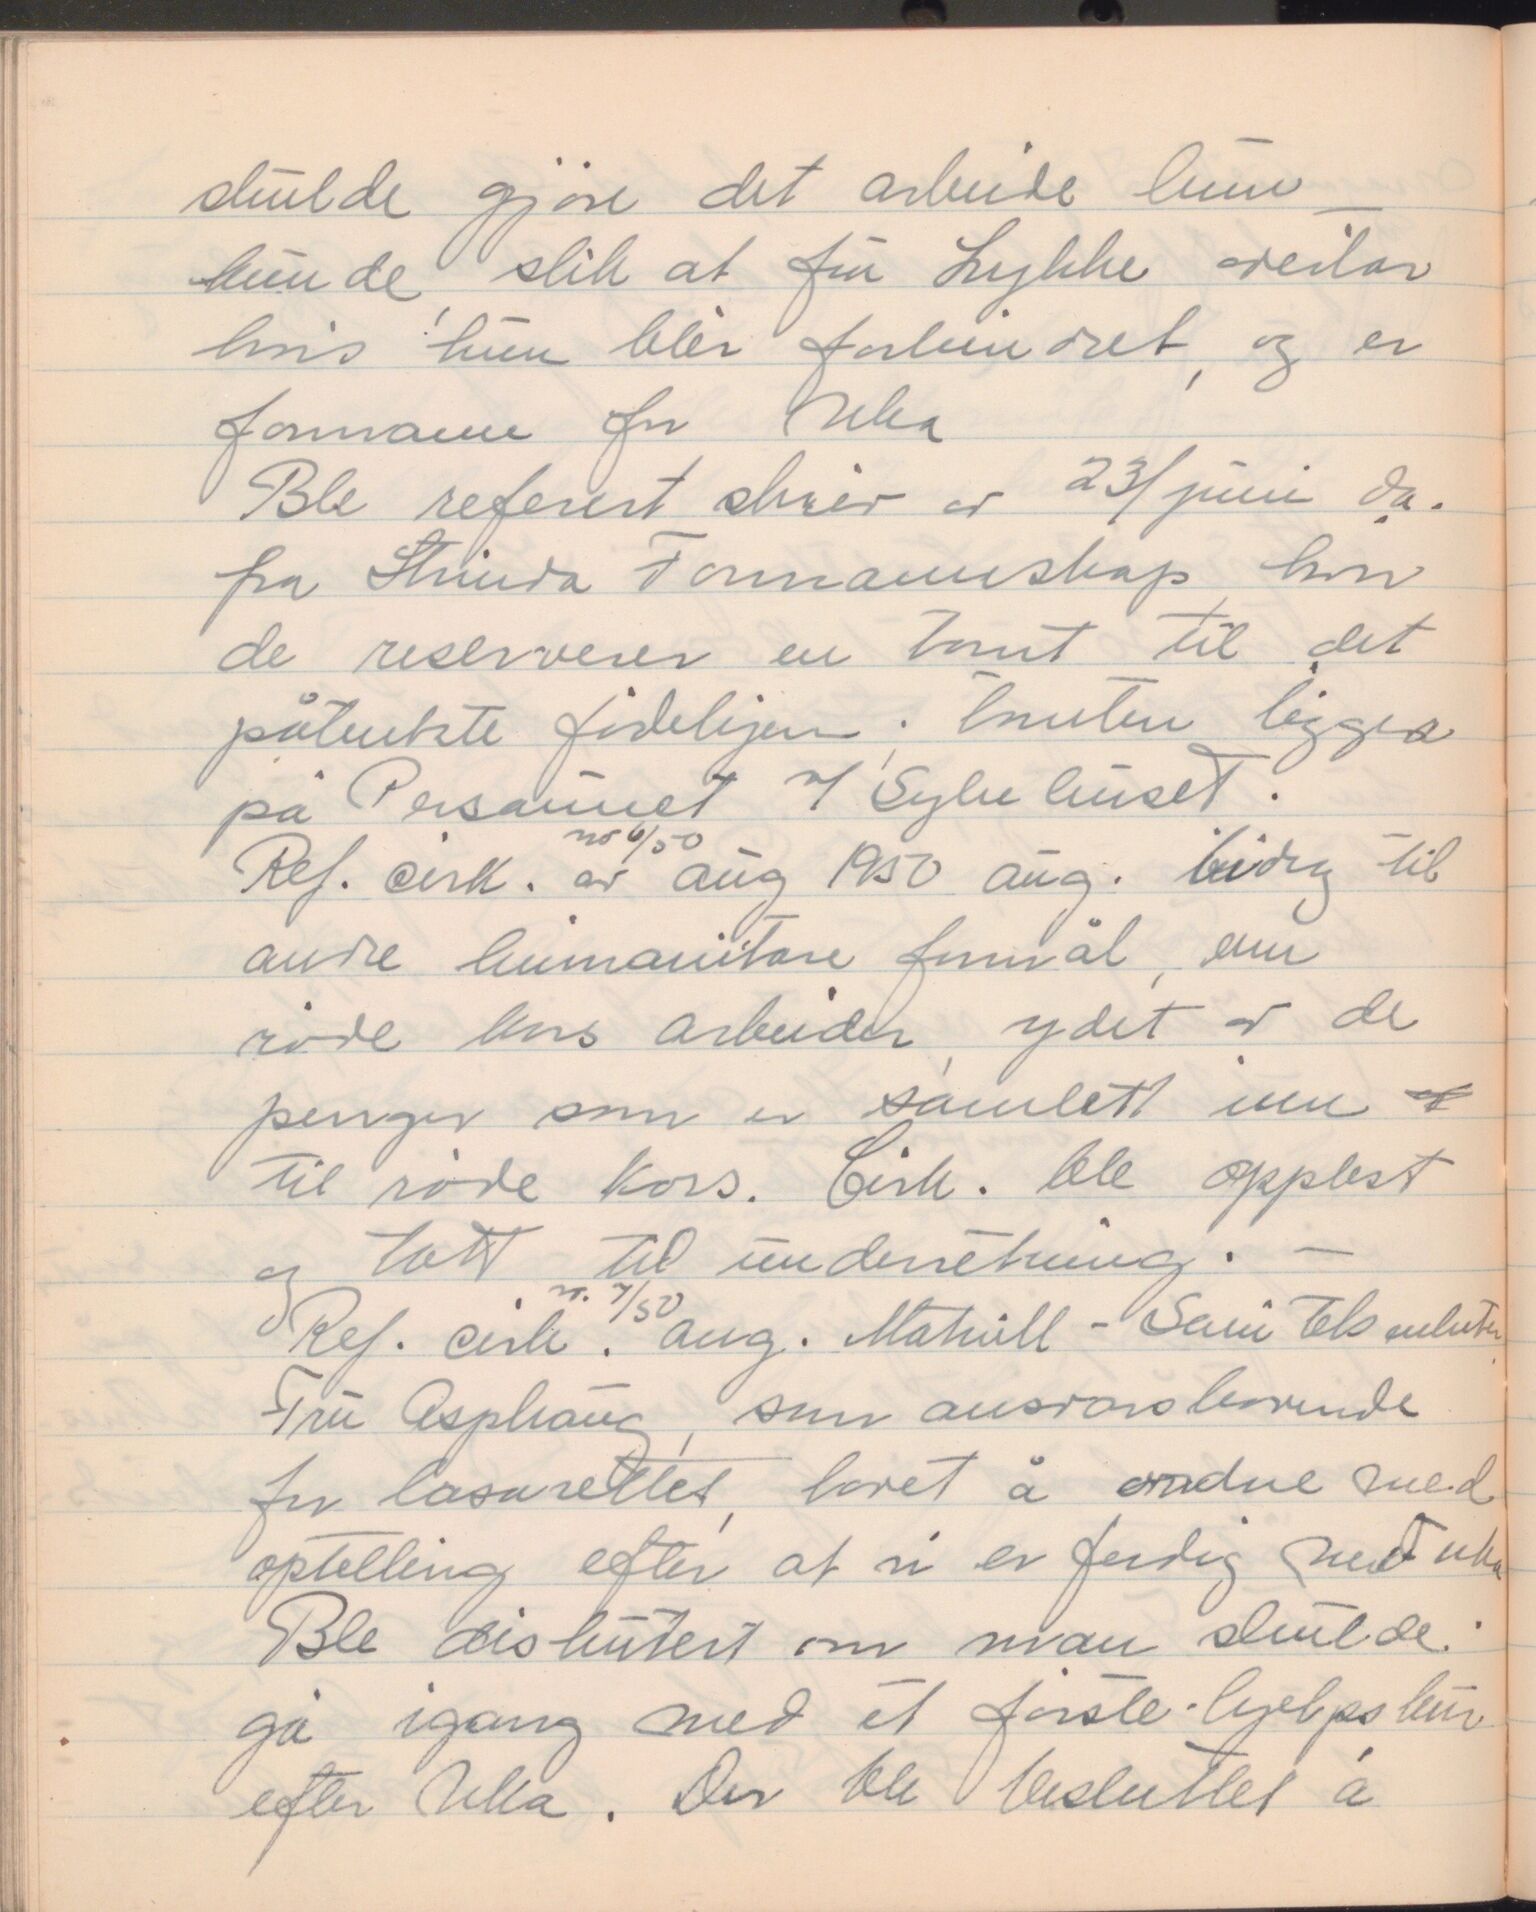 skulde gjøre det arbeide hun
kunde, slik at fru Lykke overtar
hvis hun blir forhindret, og er
formann for Uka
Ble referert skriv av 23/juni då.
fra Strinda Formannskap, hvor
de reserverer en tomt til det
påtenkte fødehjem; tomten ligger
på Persaunet v/ Sykehuset.
Ref. cirk. nr 6/50 av aug 1950 ang. bidrag til
andre humanitære formål, enn
røde kors arbeider, ydet av de
penger som er samlett inn
til røde Kors. Cirk. ble opplest
og tatt til underretning. —
Ref. cirk. nr. 7/50 ang. Matriell - Sani Teks enheter
Fru Asphaug, som ansvarshavende
for lasarettet, lovet å ordne med
optelling efter at vi er ferdig med uka
Ble diskutert om man skulde
gå igang med et første-hjelpskur
efter Uka. Der ble besluttet å